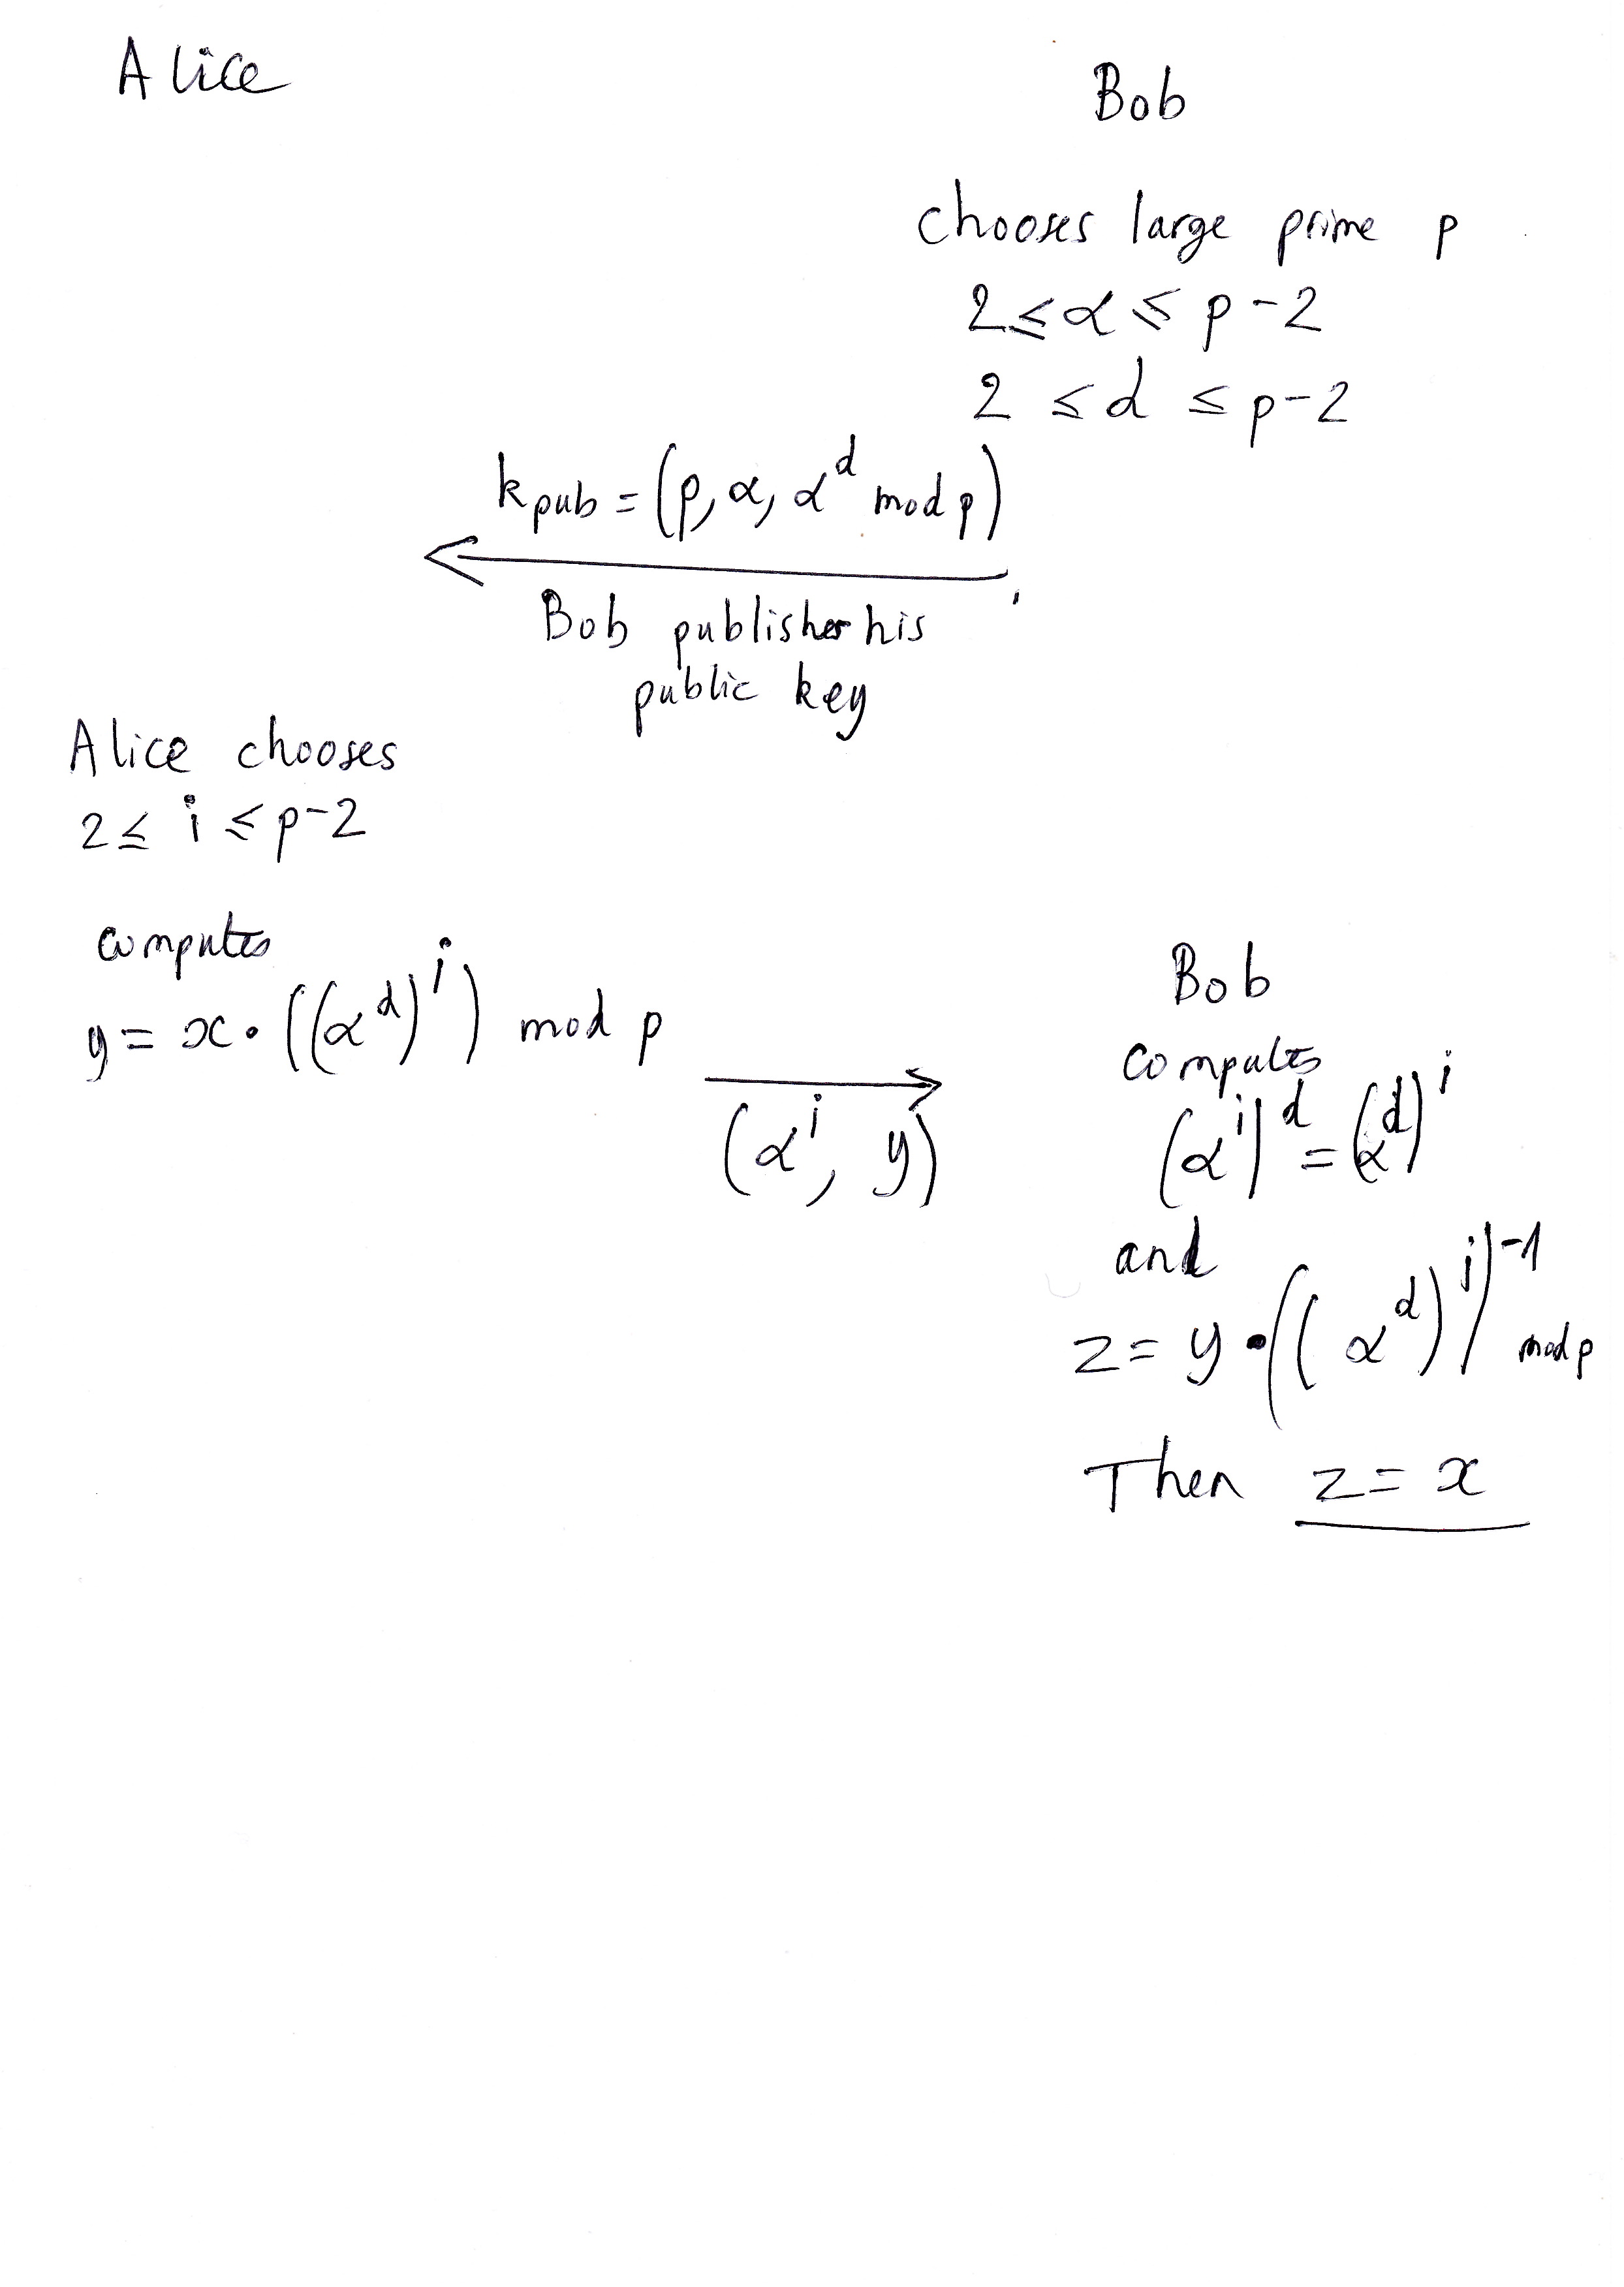 Alice
Bob
chooses large prime p
2 ≤ α ≤ p-2
2 ≤ d ≤ p-2
k_pub = (p, α, α^d mod p)
Bob publishes his
public key
Alice chooses
2 ≤ i ≤ p-2
computes
y = x · ((α^d)^i) mod p
(α^i, y)
Bob
computes
(α^i)^d = (α^d)^i
and
z = y · ((α^d)^i)^-1 mod p
Then z = x